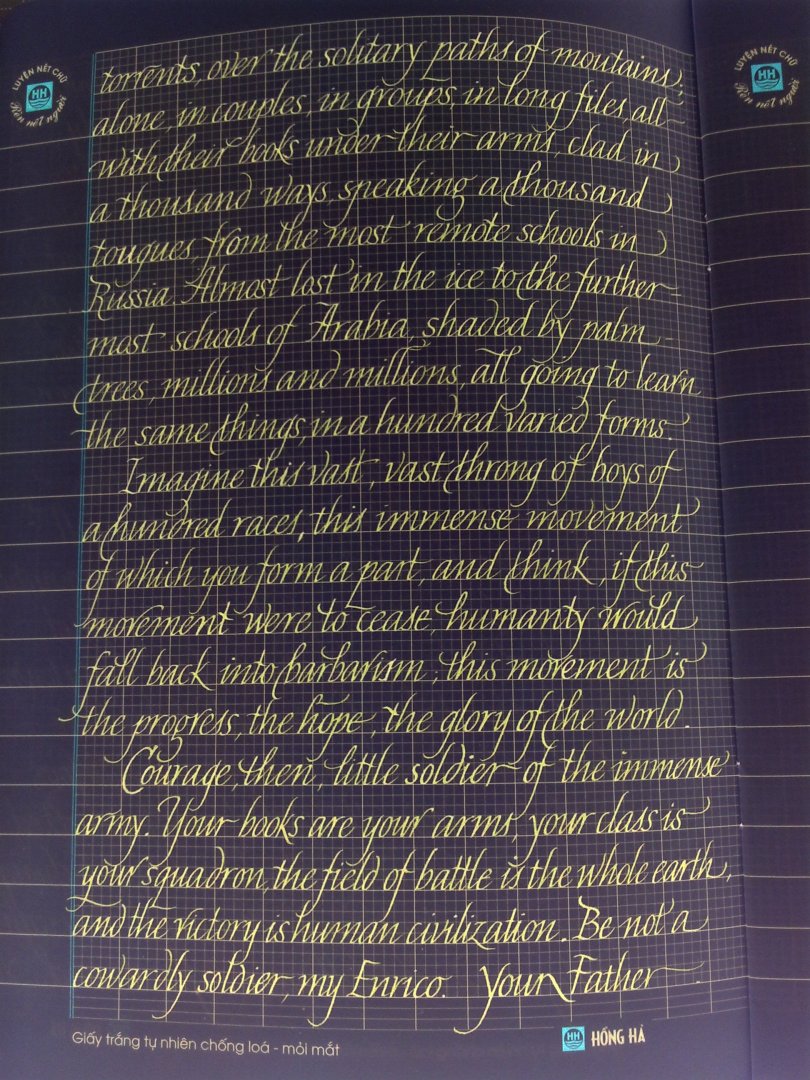 LUYỆN NÉT CHỮ
HH
Rèn nết người
LUYỆN NÉT CHỮ
HH
Rèn nết người
torrents, over the solitary paths of moutains;
alone, in couples, in groups, in long files, all
with their books under their arms, clad in
a thousand ways, speaking a thousand
tougues, from the most remote schools in
Russia. Almost lost in the ice to the further-
most schools of Arabia, shaded by palm-
trees, millions and millions, all going to learn
the same things, in a hundred varied forms.
Imagine this vast, vast throng of boys of
a hundred races, this immense movement
of which you form a part, and think, if this
movement were to cease, humanty would
fall back into barbarism; this movement is
the progress, the hope, the glory of the world.
Courage, then, little soldier of the immense
army. Your books are your arms, your class is
your squadron, the field of battle is the whole earth,
and the victory is human civilization. Be not a
cowardly soldier, my Enrico. Your Father
Giấy trắng tự nhiên chống loá - mỏi mắt
HH HỒNG HÀ